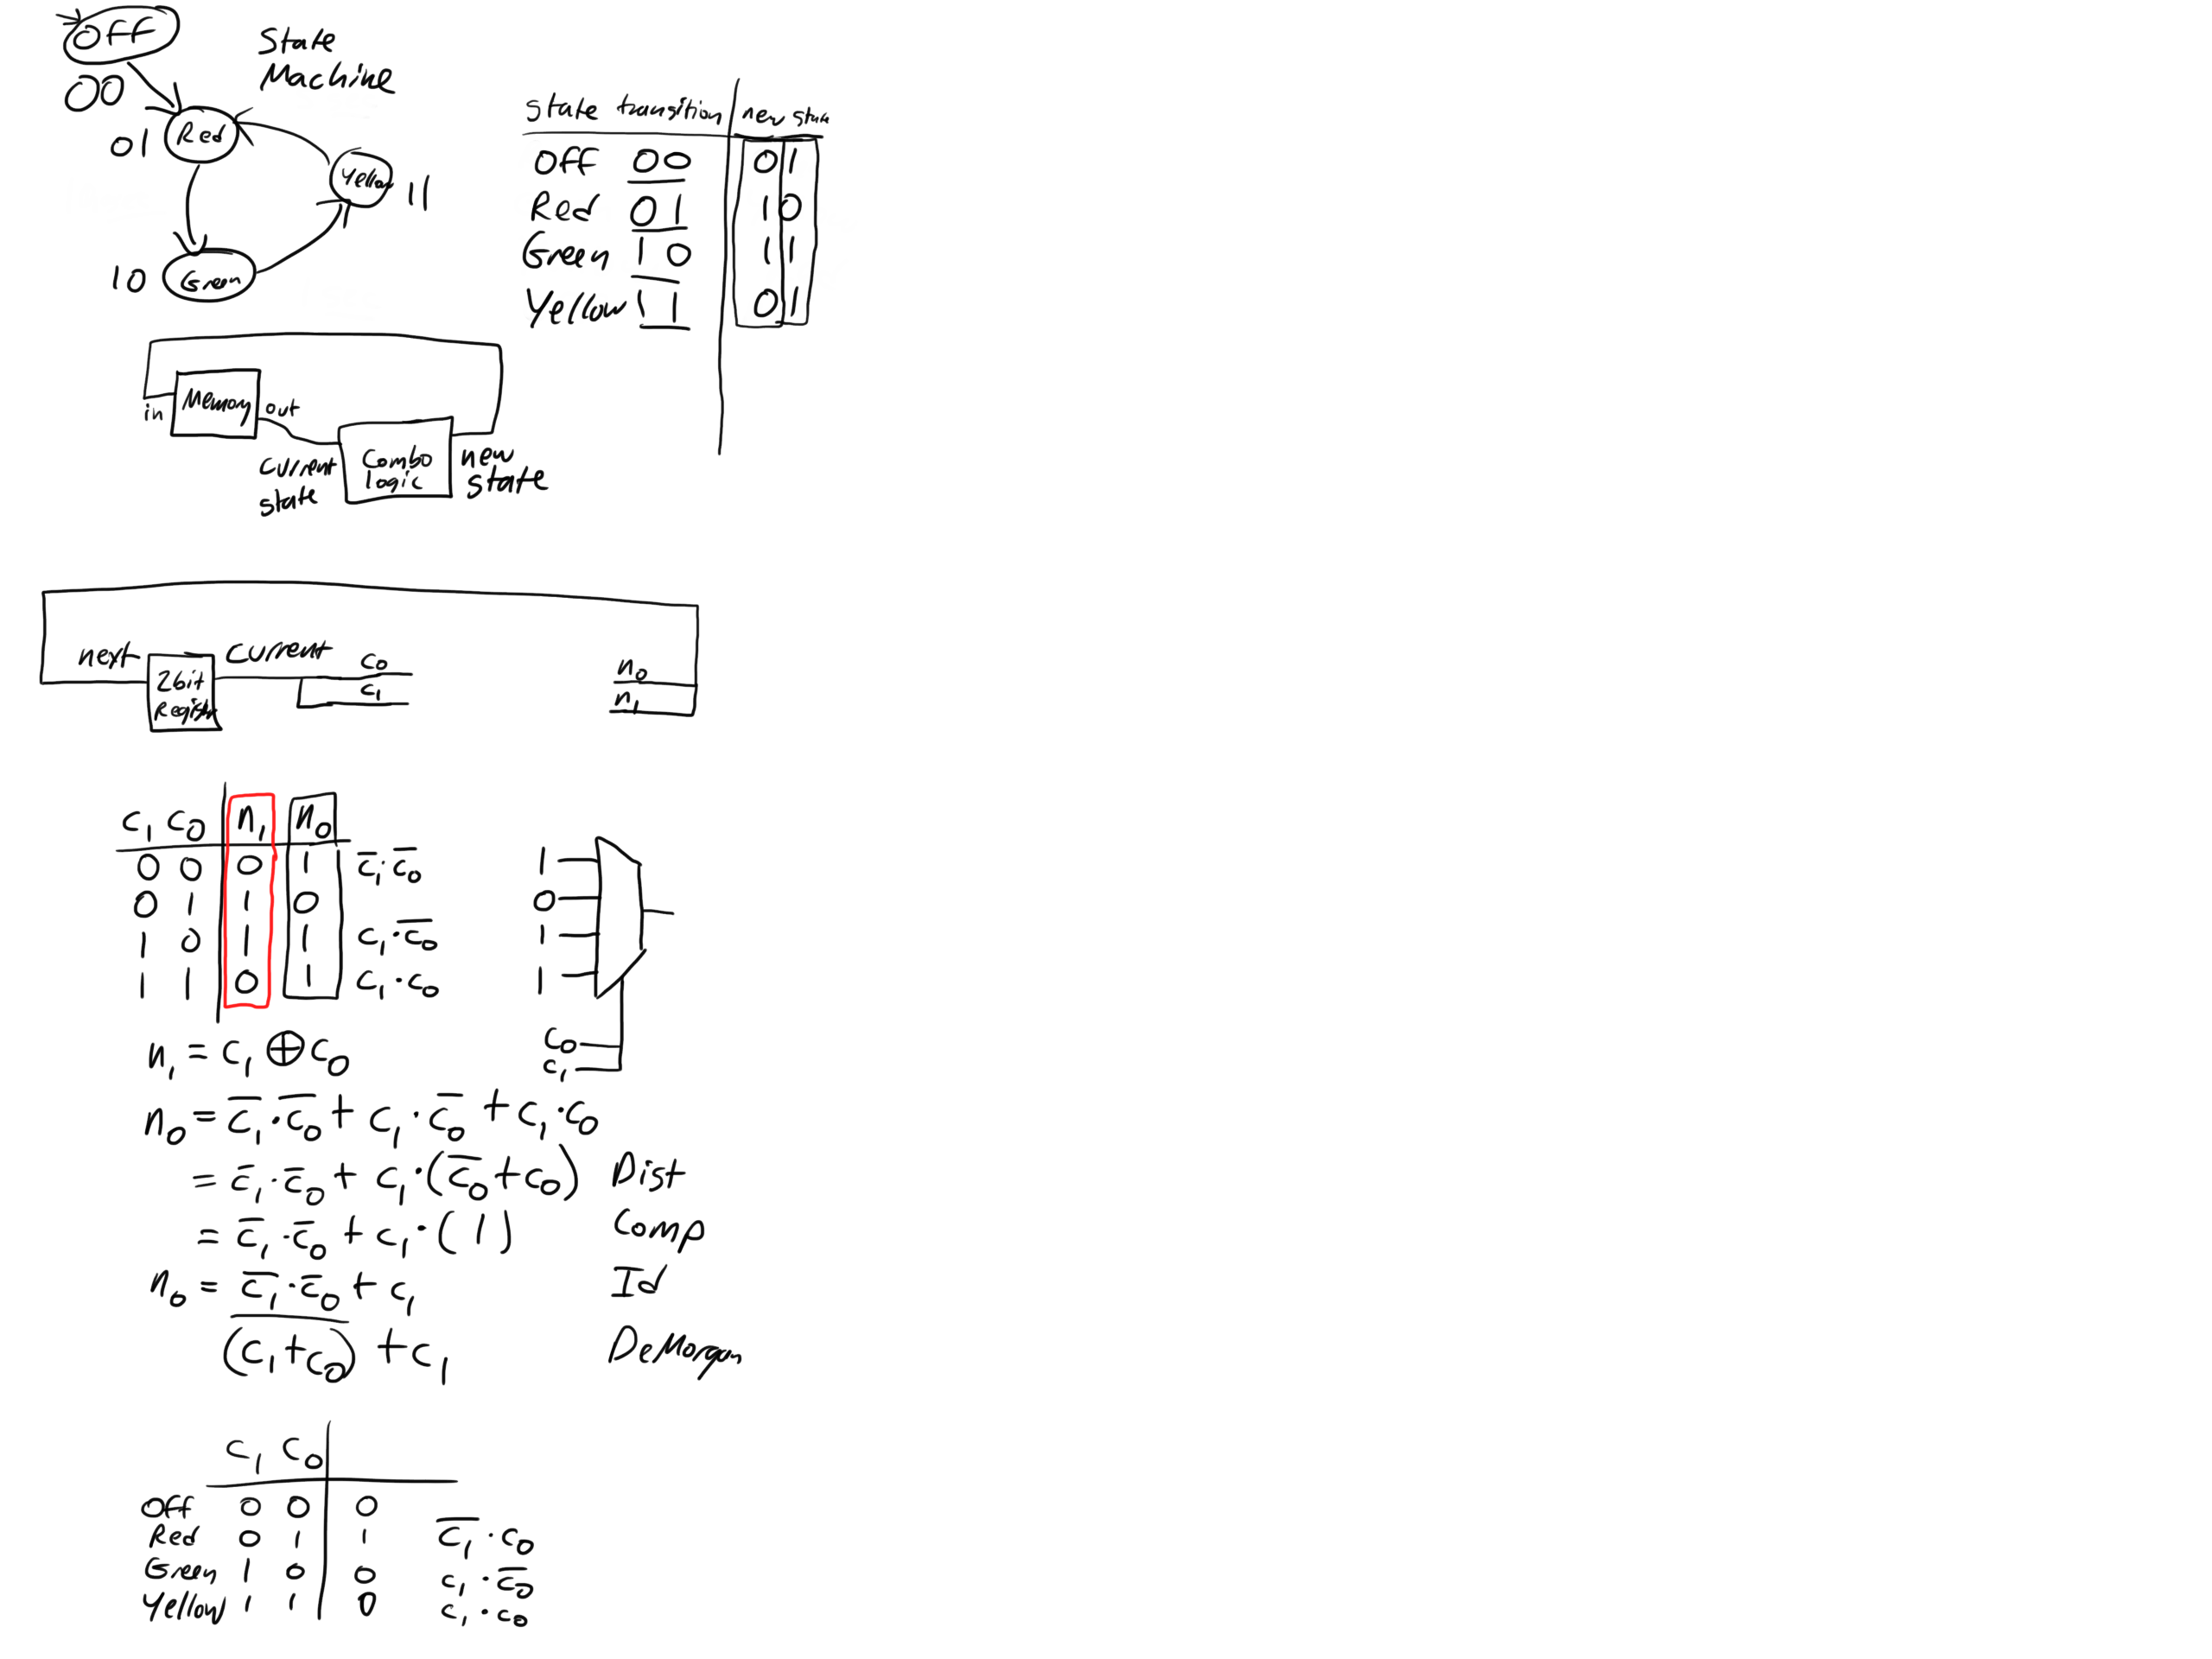 Off
State
Machine
00
01 Red
Yellow 11
10 Green
state transition | new state
Off 00 | 01
Red 01 | 10
Green 10 | 11
Yellow 11 | 01
in Memory out
current state
Combo logic
new state
next
2bit Register
current
c₀
c₁
n₀
n₁
c₁ c₀ | n₁ n₀
0 0 | 0 1 c̅₁·c̅₀
0 1 | 1 0
1 0 | 1 1 c₁·c̅₀
1 1 | 0 1 c₁·c₀
1
0
1
1
c₀
c₁
n₁ = c₁ ⊕ c₀
n₀ = c̅₁·c̅₀ + c₁·c̅₀ + c₁·c₀
= c̅₁·c̅₀ + c₁·(c̅₀+c₀) Dist
= c̅₁·c̅₀ + c₁·(1) Comp
n₀ = c̅₁·c̅₀ + c₁ Id
(c₁+c₀)̅ + c₁ DeMorgan
c₁ c₀ |
Off 0 0 | 0
Red 0 1 | 1 c̅₁·c₀
Green 1 0 | 0 c₁·c̅₀
Yellow 1 1 | 0 c₁·c₀